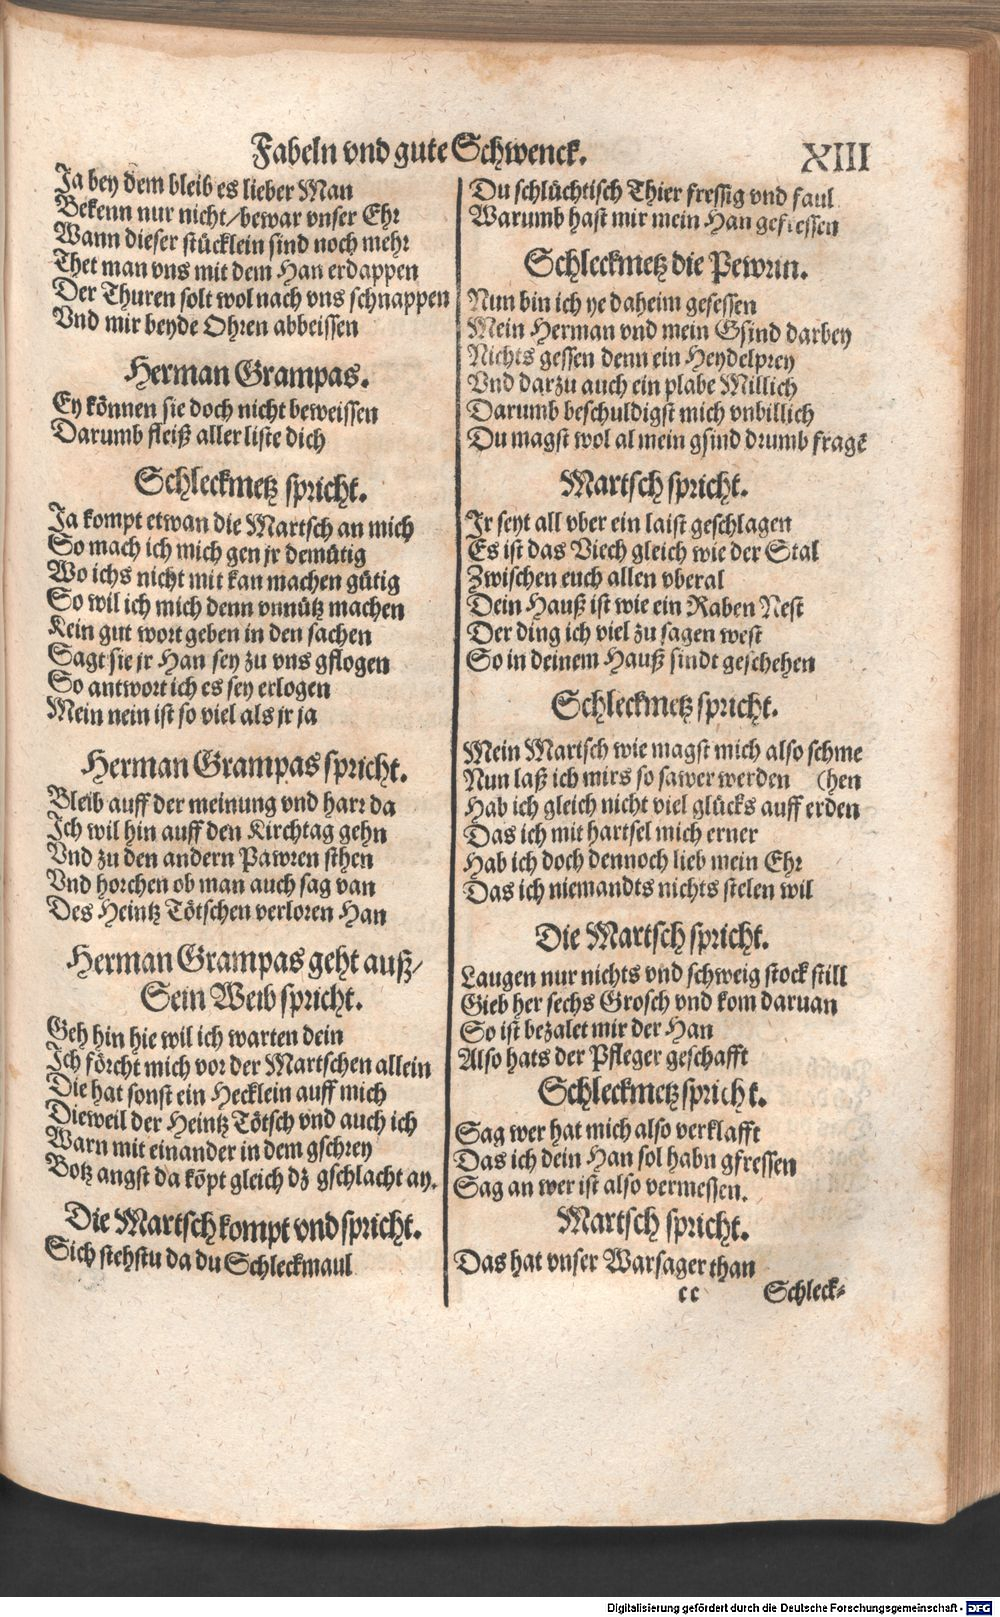 Fabeln vnd gute Schwenck.
XIII
Ja bey dem bleib es lieber Man
Bekenn nur nicht/bewar vnser Ehr
Wann dieser stücklein sind noch mehr
Thet man vns mit dem Han erdappen
Der Thuren solt wol nach vns schnappen
Vnd mir beyde Ohren abbeissen
Herman Grampas.
Ey können sie doch nicht beweissen
Darumb fleiß aller liste dich
Schleckmetz spricht.
Ja kompt etwan die Martsch an mich
So mach ich mich gen jr demütig
Wo ichs nicht mit kan machen gütig
So wil ich mich denn vnnütz machen
Kein gut wort geben in den sachen
Sagt sie jr Han sey zu vns gflogen
So antwort ich es sey erlogen
Mein nein ist so viel als jr ja
Herman Grampas spricht.
Bleib auff der meinung vnd harr da
Ich wil hin auff den Kirchtag gehn
Vnd zu den andern Pawren sthen
Vnd horchen ob man auch sag van
Des Heintz Tötschen verloren Han
Herman Grampas geht auß/
Sein Weib spricht.
Geh hin hie wil ich warten dein
Ich förcht mich vor der Martschen allein
Die hat sonst ein Hecklein auff mich
Dieweil der Heintz Tötsch vnd auch ich
Warn mit einander in dem gschrey
Botz angst da köpt gleich dz gschlacht ay.
Die Martsch kompt vnd spricht.
Sich stehstu da du Schleckmaul
Du schlüchtisch Thier fressig vnd faul
Warumb hast mir mein Han gefressen
Schleckmetz die Pewrin.
Nun bin ich ye daheim gesessen
Mein Herman vnd mein Gsind darbey
Nichts gessen denn ein Heydelprey
Vnd darzu auch ein plabe Millich
Darumb beschuldigst mich vnbillich
Du magst wol al mein gsind drumb fragē
Martsch spricht.
Jr seyt all vber ein laist geschlagen
Es ist das Viech gleich wie der Stal
Zwischen euch allen vberal
Dein Hauß ist wie ein Raben Nest
Der ding ich viel zu sagen west
So in deinem Hauß sindt geschehen
Schleckmetz spricht.
Mein Martsch wie magst mich also schme
Nun laß ich mirs so sawer werden (hen
Hab ich gleich nicht viel glücks auff erden
Das ich mit hartsel mich erner
Hab ich doch dennoch lieb mein Ehr
Das ich niemandts nichts stelen wil
Die Martsch spricht.
Laugen nur nichts vnd schweig stock still
Gieb her sechs Grosch vnd kom daruan
So ist bezalet mir der Han
Also hats der Pfleger geschafft
Schleckmetz spricht.
Sag wer hat mich also verklafft
Das ich dein Han sol habn gfressen
Sag an wer ist also vermessen.
Martsch spricht.
Das hat vnser Warsager than
cc
Schleck⸗
Digitalisierung gefördert durch die Deutsche Forschungsgemeinschaft - DFG